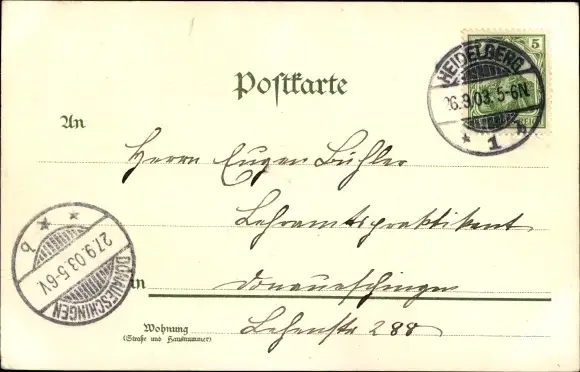 5
HEIDELBERG
26.9.03. 5-6N
* 1 b
REICH
Postkarte
An
Herrn Eugen Bühler
Lehramtspraktikant
in Donaueschingen
Wohnung
(Straße und Hausnummer)
Lehenstr 288
DONAUESCHINGEN
27.9.03. 5-6V
* * b